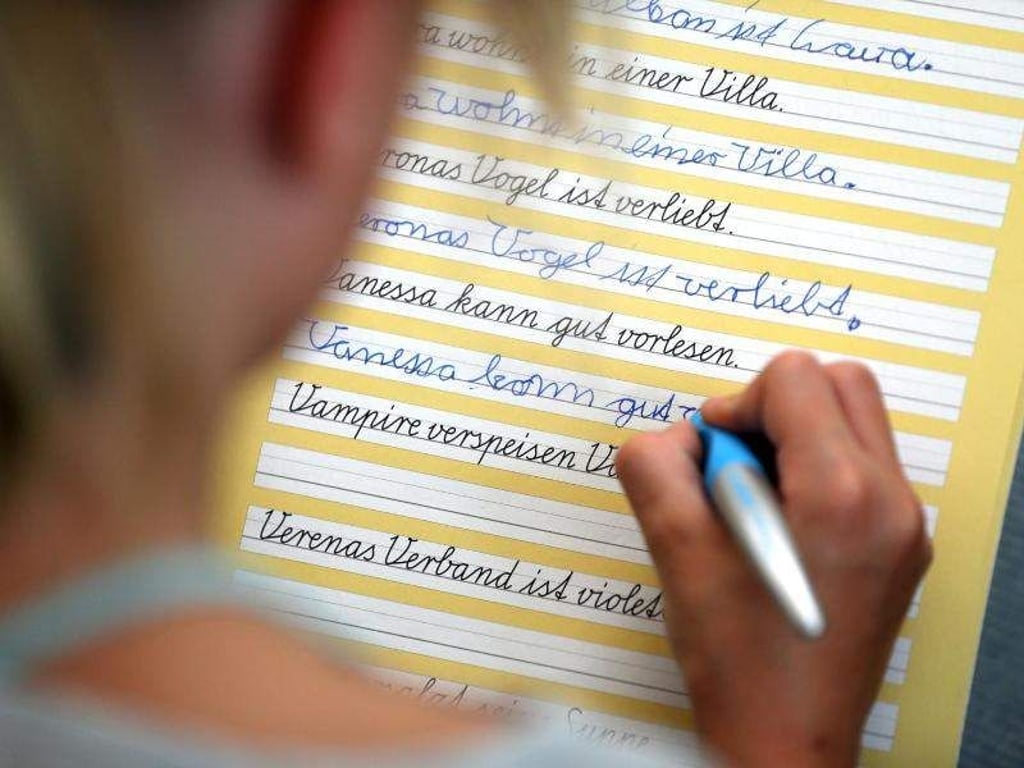 ist Laura.
in einer Villa.
in einer Villa.
Vogel ist verliebt.
Vogel ist verliebt.
Vanessa kann gut vorlesen.
Vanessa kann gut
Vampire verspeisen
Verenas Verband ist violet